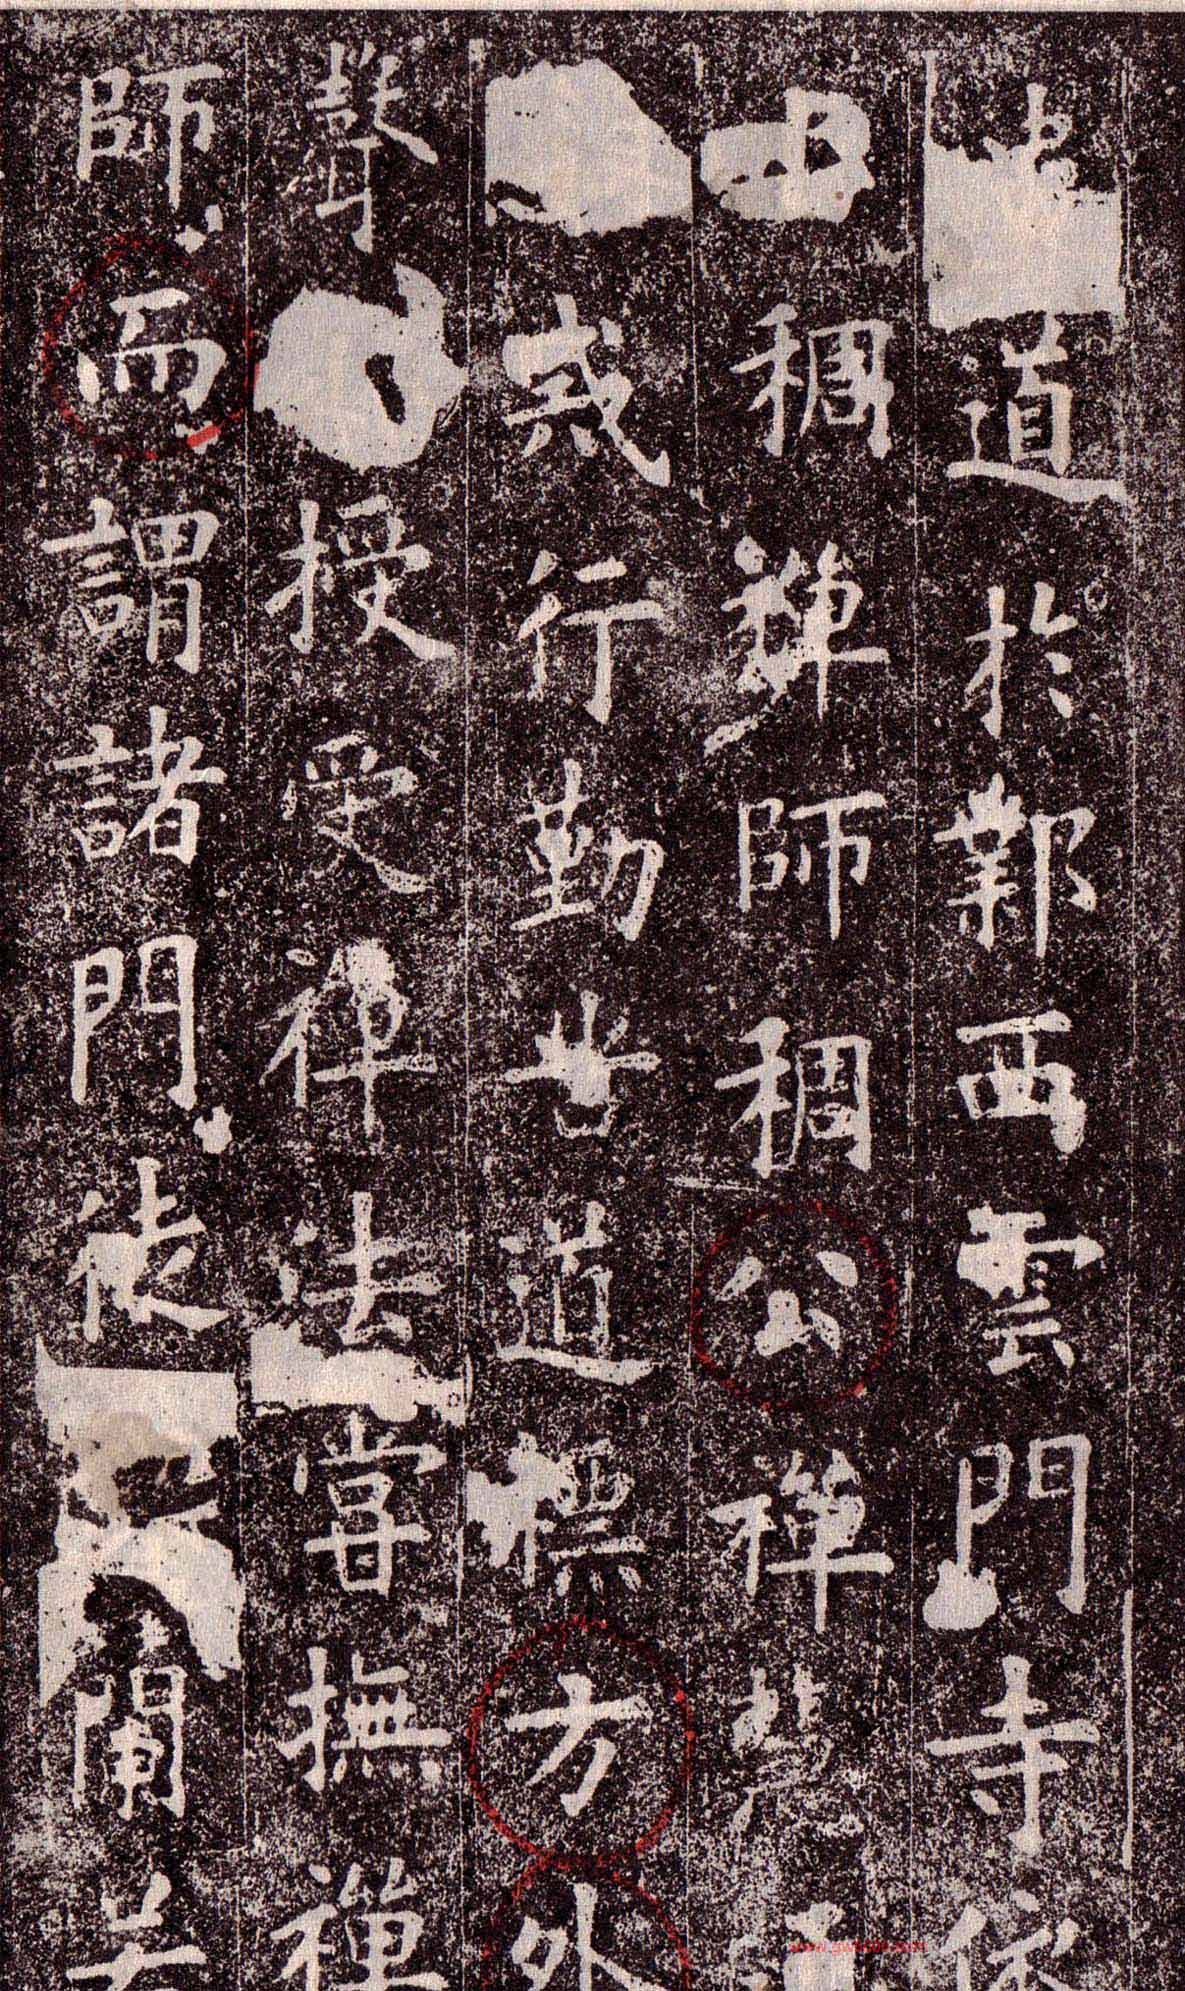 道於鄴西雲門寺依
稠禪師稠公禪慧
戒行勤苦道標方外
聲授受禪法嘗撫禪
師而謂諸門徒蘭若